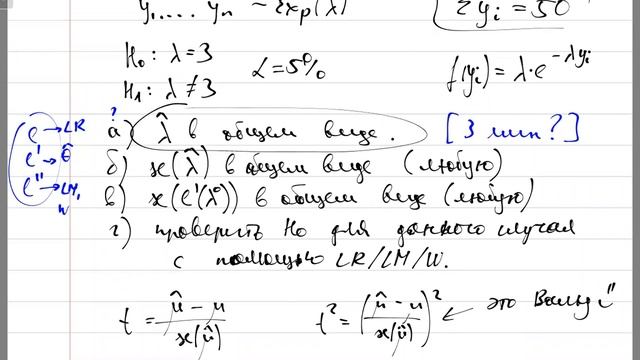 y₁....yₙ ~ exp(λ)
Σyᵢ = 50
H₀: λ=3
H₁: λ≠3
α=5%
f(yᵢ) = λ·e^(-λyᵢ)
?
а) λ̂ в общем виде. [3 мин?]
б) se(λ̂) в общем виде (любую)
в) se(ℓ'(λ⁰)) в общем виде (любую)
г) проверить H₀ для данного случая
с помощью LR/LM/W.
ℓ → LR
ℓ' → θ̂
ℓ'' → LM,
W
t = (û - u)/se(û)
t² = ((û - u)/se(û))² ← это Вальд